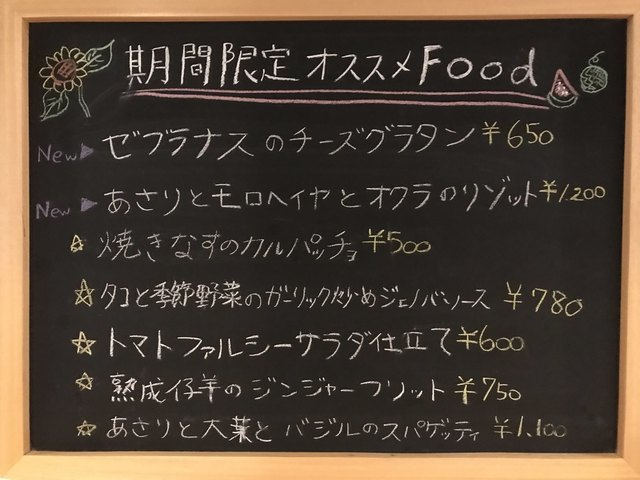 期間限定オススメFood
New▶ゼブラナスのチーズグラタン ¥650
New▶あさりとモロヘイヤとオクラのリゾット¥1.200
☆焼きなすのカルパッチョ¥500
☆タコと季節野菜のガーリック炒めジェノバソース ¥780
☆トマトファルシーサラダ仕立て¥600
☆熟成仔羊のジンジャーフリット¥750
☆あさりと大葉とバジルのスパゲッティ ¥1.100